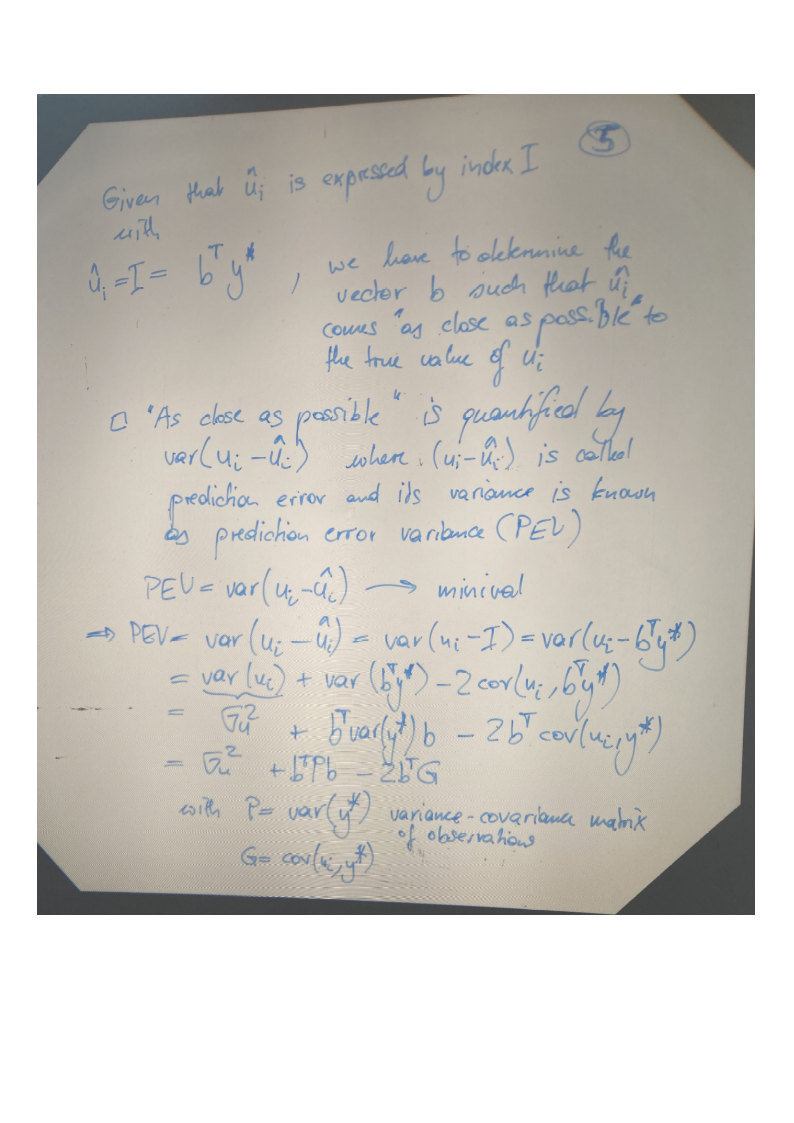 5
Given that ûᵢ is expressed by index I
with
ûᵢ = I = bᵀy* , we have to determine the
vector b such that ûᵢ
comes "as close as possible" to
the true value of uᵢ
□ "As close as possible" is quantified by
var(uᵢ - ûᵢ) where (uᵢ - ûᵢ) is called
prediction error and its variance is known
as prediction error variance (PEV)
PEV = var(uᵢ - ûᵢ) → minimal
⇒ PEV = var(uᵢ - ûᵢ) = var(uᵢ - I) = var(uᵢ - bᵀy*)
= var(uᵢ) + var(bᵀy*) - 2cov(uᵢ, bᵀy*)
= σᵤ² + bᵀvar(y*)b - 2bᵀcov(uᵢ, y*)
= σᵤ² + bᵀPb - 2bᵀG
with P = var(y*) variance-covariance matrix
of observations
G = cov(uᵢ, y*)